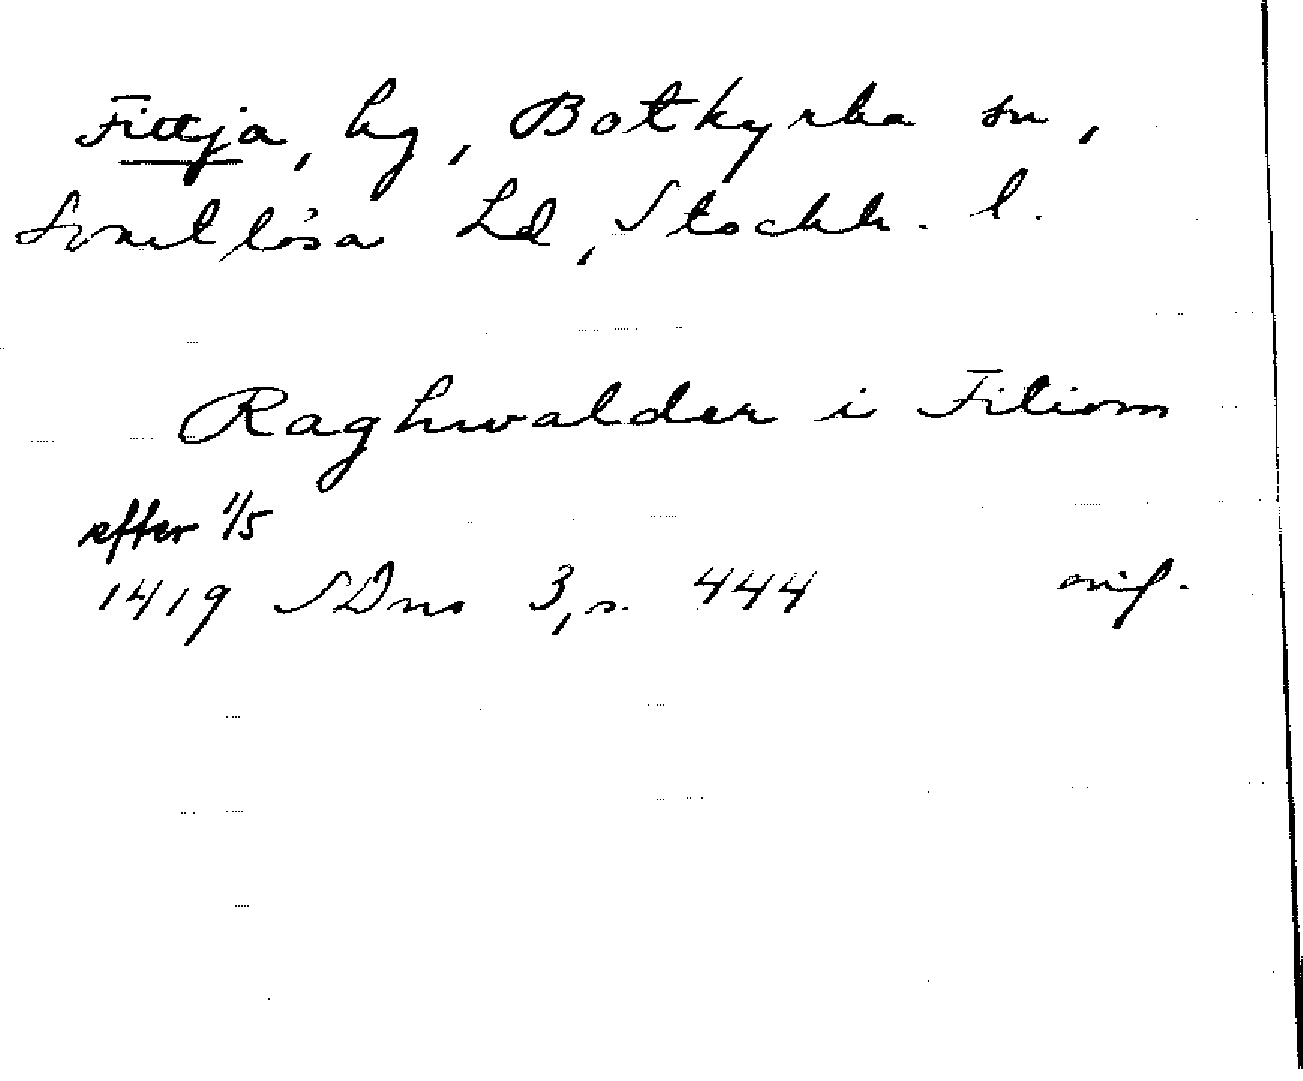 Fittja, by, Botkyrka sn,
Svartlösa hd, Stockh. l.
Raghwalder i Fitiom
efter 1/5
1419 SDns 3, s. 444